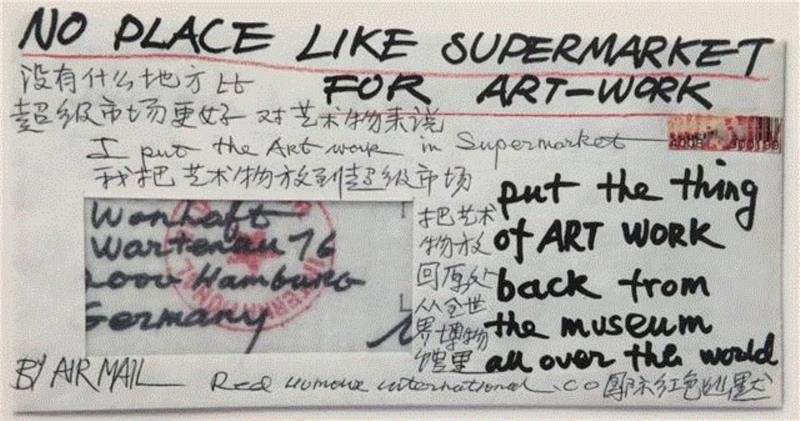 NO PLACE LIKE SUPERMARKET
FOR ART-WORK
没有什么地方比
超级市场更好 对艺术物来说
I put the Art work in Supermarket
我把艺术物放到超级市场
put the thing
of ART WORK
back from
the museum
all over the world
把艺术
物放
回原处
从全世
界博物
馆里
Wartenau 76
2000 Hamburg
Germany
INTERNATIONAL
BY AIR MAIL
Red Humour International .CO 国际红色幽默